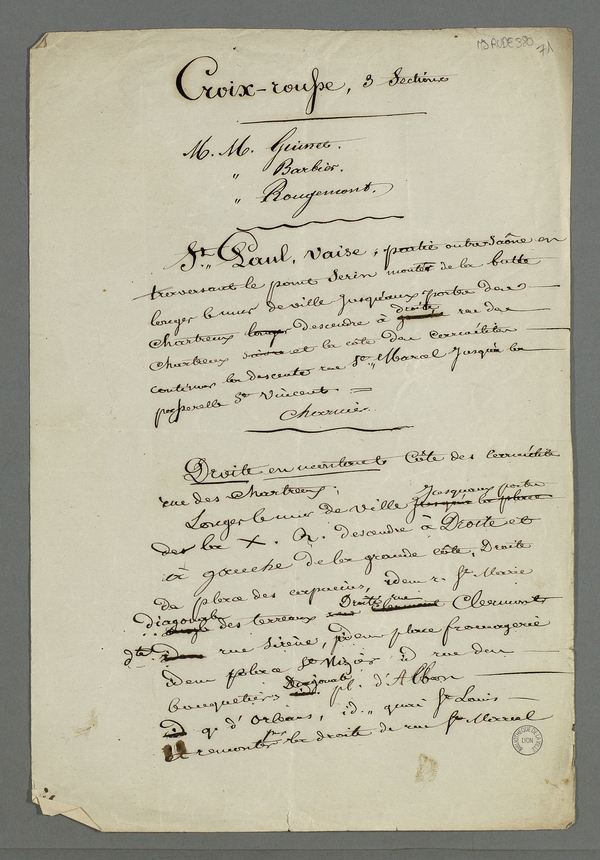 MS RUDE 380
71
Croix-rousse, 3 Sections
M. M. Guinet.
" Barbier.
" Rougemont.
St. Paul, Vaise, partie outre Saône en
traversant le pont Serin montée de la butte
longer le mur de ville jusqu'aux portes des
chartreux descendre à droite rue des
chartreux et la côte des carmélites
continuer la descente rue St. Marcel jusqu'à la
passerelle St Vincent =
Charnier
Droite en montant Côte des carmélites
rue des Chartreux,
Longer le mur de ville jusqu'aux portes
de la X. R. descendre à Droite et
à gauche de la grande côte, Droite
de place des capucins, idem r. Ste Marie
diagonale des terreaux Droite rue Clermont
dte. rue Sirène, idem place fromagerie
idem place St Nizier id rue des
bouquetiers Diagonale pl. d'Albon
id q. d'Orléans, id. quai St Louis
et remonter la droite de rue St Marcel
BIBLIOTHEQUE DE LA VILLE LYON